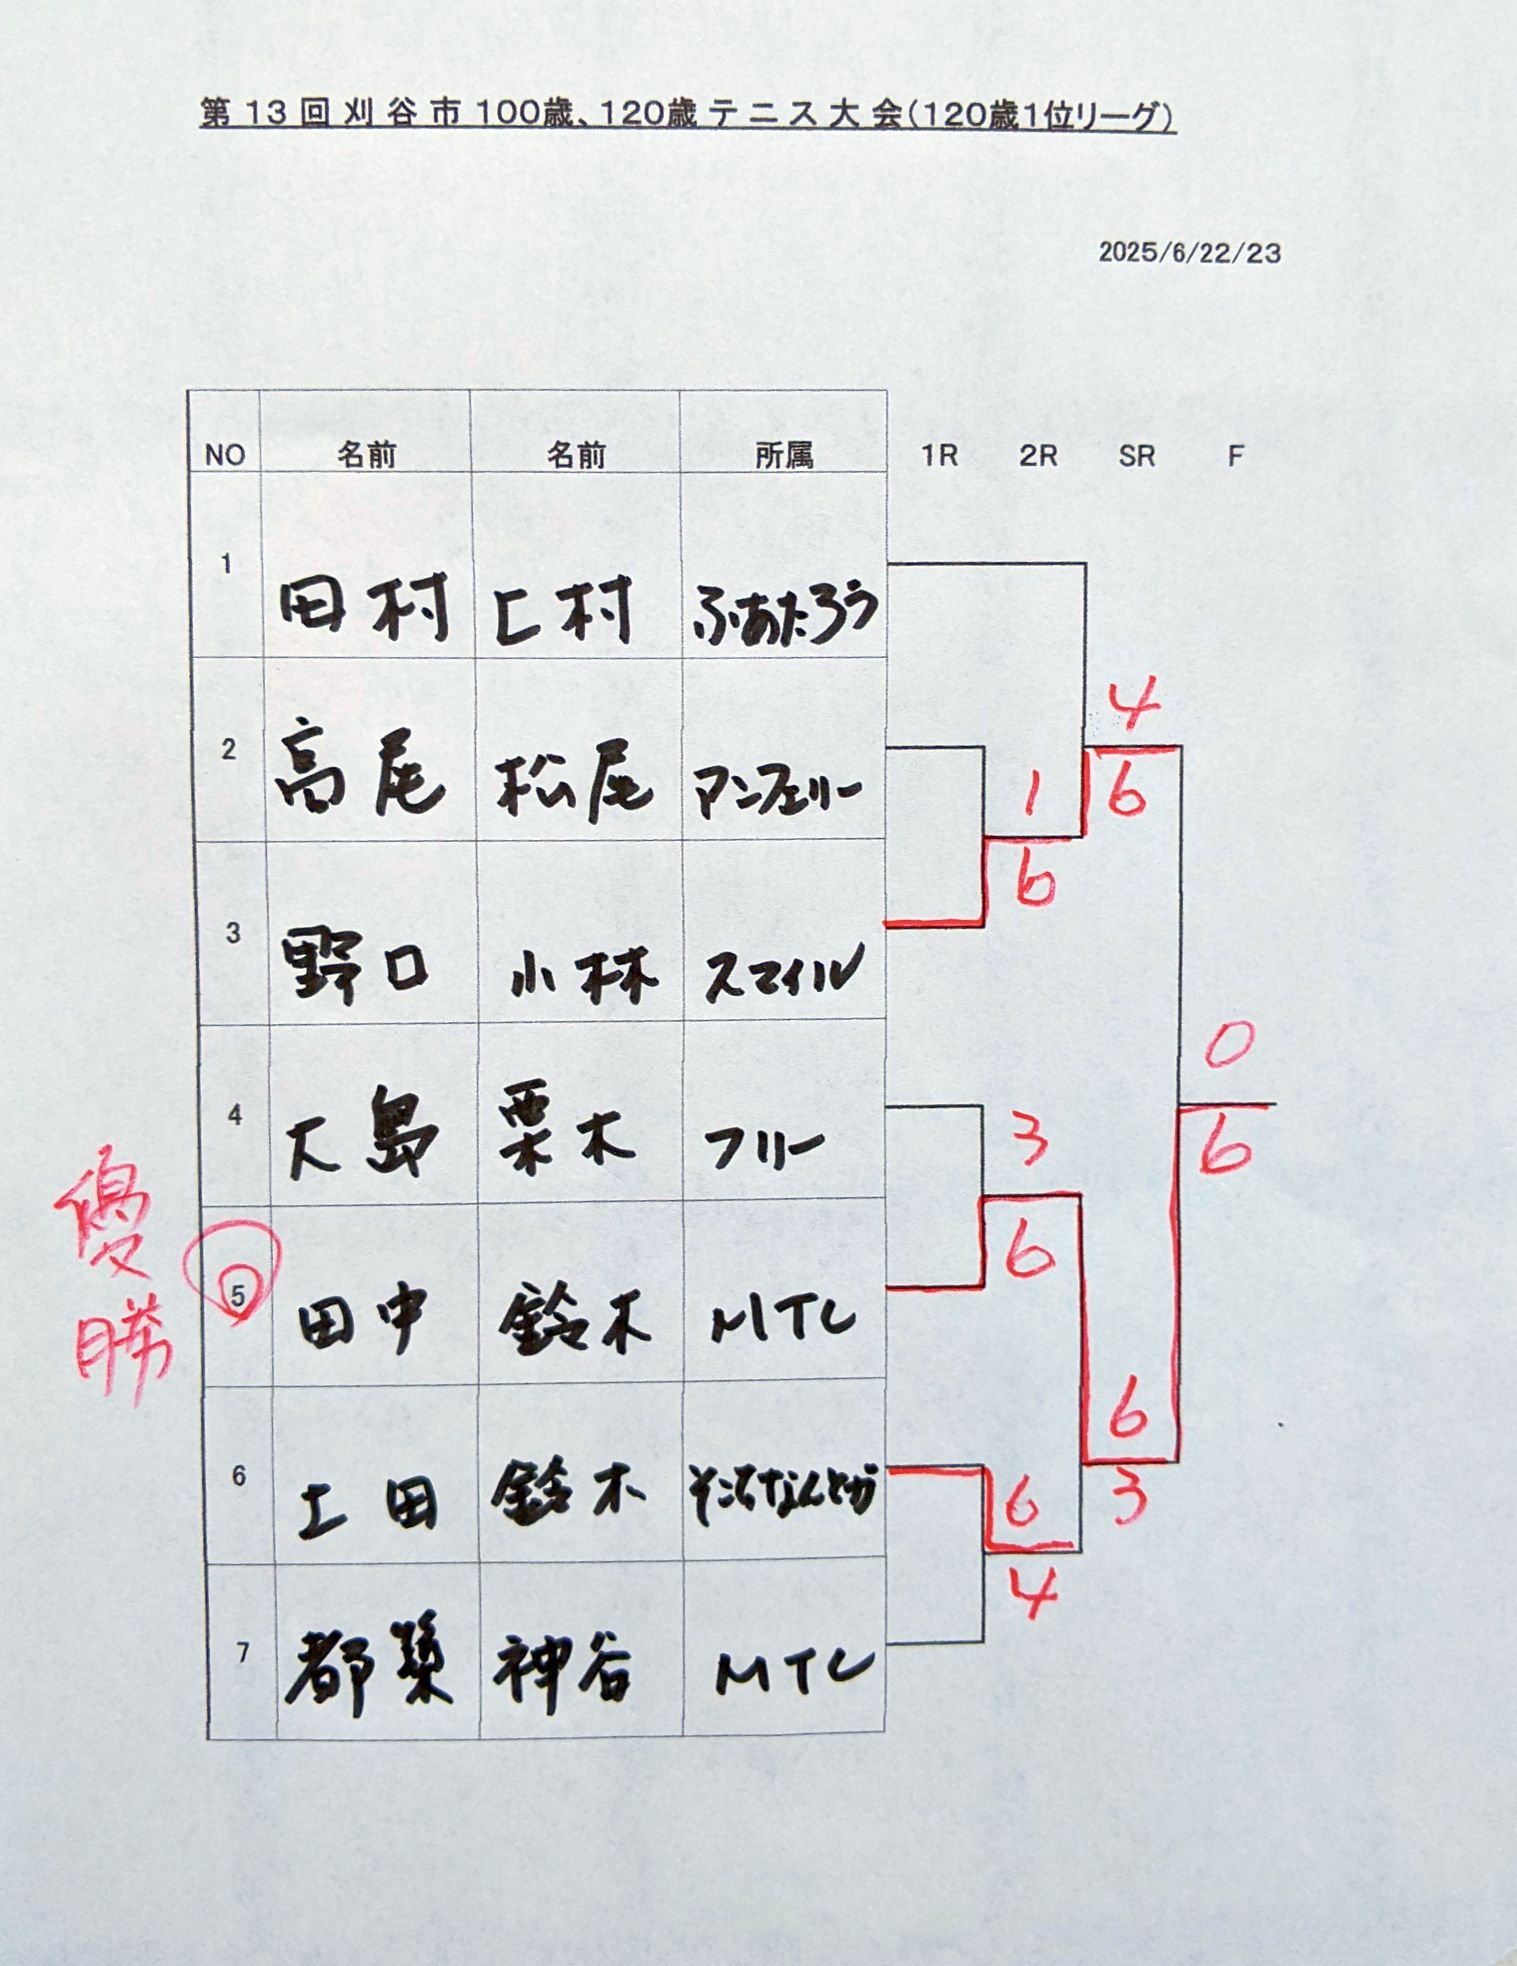 第13回刈谷市100歳、120歳テニス大会(120歳1位リーグ)
2025/6/22/23
NO 名前 名前 所属 1R 2R SR F
1 田村 上村 ふあたろう
4
2 高尾 松尾 マンフェリー
1 6
6
3 野口 小林 スマイル
0
4 大島 栗木 フリー
3 6
優勝
6
5 田中 鈴木 MTC
6
6 土田 鈴木
6 3
4
7 都築 神谷 MTC